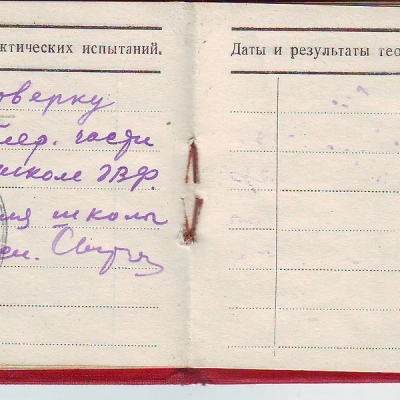 ктических испытаний.
оверку
части
школе ЗВФ.
ия школы
Даты и результаты тео